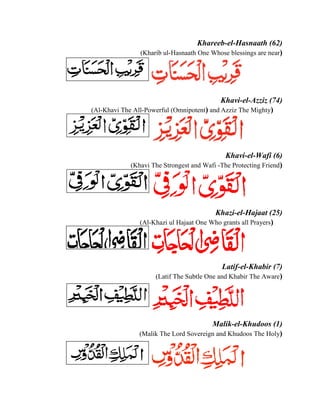 Khareeb-el-Hasnaath (62)
(Kharib ul-Hasnaath One Whose blessings are near)
قَرِيْبِ الْحَسَنَاتِ قَرِيْبِ الْحَسَنَاتِ
Khavi-el-Azziz (74)
(Al-Khavi The All-Powerful (Omnipotent) and Azziz The Mighty)
الْقَوِىِّ الْعَزِيْزِ الْقَوِىِّ الْعَزِيْزِ
Khavi-el-Wafi (6)
(Khavi The Strongest and Wafi -The Protecting Friend)
الْقَوِىِّ الْوَرِفِىِّ الْقَوِىِّ الْوَرِفِىِّ
Khazi-el-Hajaat (25)
(Al-Khazi ul Hajaat One Who grants all Prayers)
الْقَاضِى الْحَاجَاتِ الْقَاضِى الْحَاجَاتِ
Latif-el-Khabir (7)
(Latif The Subtle One and Khabir The Aware)
اللَّطِيْفِ الْخَبِيْرِ اللَّطِيْفِ الْخَبِيْرِ
Malik-el-Khudoos (1)
(Malik The Lord Sovereign and Khudoos The Holy)
الْمَلِكِ الْقُدُّوْسِ الْمَلِكِ الْقُدُّوْسِ